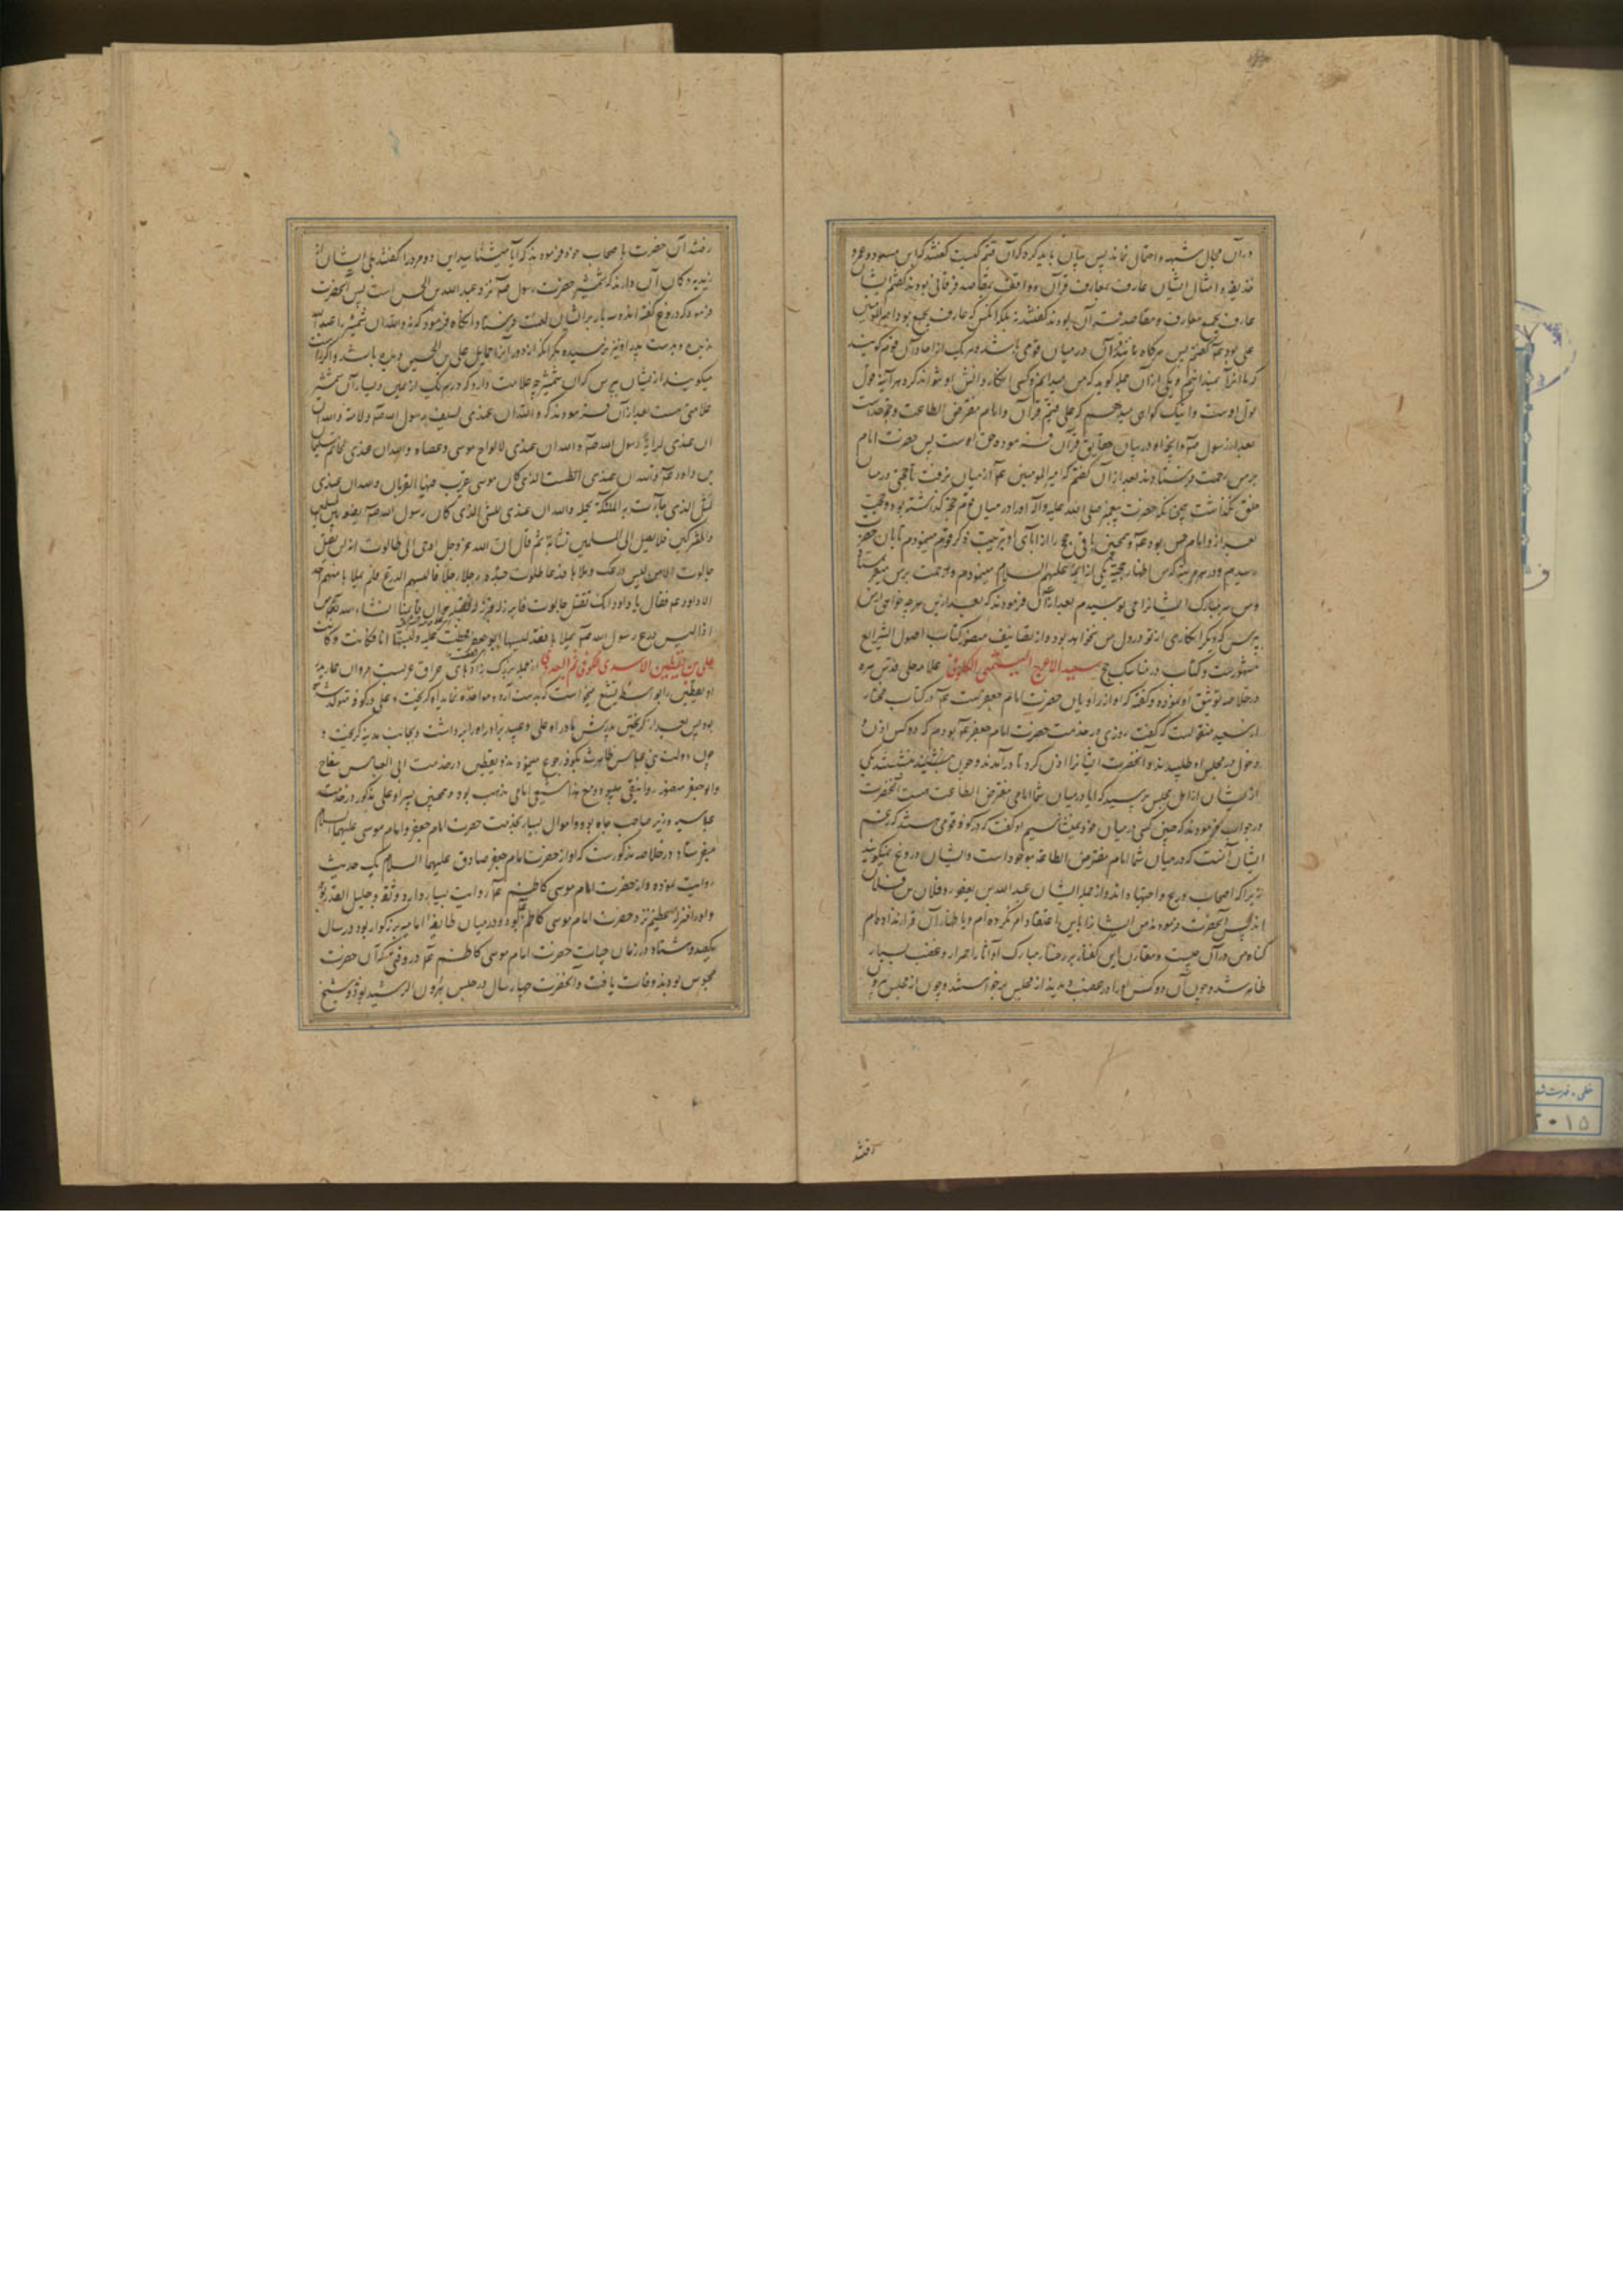 در آن مجال شبهه و احتمال نماند پس بیان باید کرد که آن قیم کیست گفتند که ابن مسعود و عمرو
حذیفه و امثال ایشان عارف بمعارف قرآن و واقف بمقاصد فرقانی بودند گفتم ایشان
عارف بجمیع معارف و مقاصد قرآن بودند گفتند نه بلکه آنکس که عارف بجمیع بود امیرالمؤمنین
علی بود عم گفتم پس هرگاه مانند قرآن در میان قومی باشد و هر یک از احاد آن قوم گویند
که ما آنرا نمیدانیم و یکی از آن جمله گوید که من میدانم و کسی انکار دانش او نتواند کرد هر آینه قول
قول اوست و اینک گواهی میدهم که علی قیم قرآن و امام مفترض الطاعت و حجت خداست
بعد از رسول صم و آنچه او در بیان حقایق قرآن فرموده حق است پس حضرت امام
بر من رحمت فرستادند بعد از آن گفتم که امیرالمؤمنین عم از میان نرفت تا حجتی در میان
خلق نگذاشت همچنانکه حضرت پیغمبر صلی الله علیه و آله او را در میان قوم حجة گذاشته بود و حجت
بعد از او امام حسن بود عم و همچنین باقی حجج را از آبای او بترتیب ذکر قوم مینمودم تا بآن حضرت
رسیدم و در هر مرتبه که من اظهار حجیة یکی از ائمه علیهم السلام مینمودم او رحمت بر من میفرستاد
و من سر مبارک ایشان را می بوسیدم بعد از آن فرمودند که بعد از این هر چه خواهی از من
بپرس که دیگر انکاری از تو در دل من نخواهد بود و از تصانیف منصور کتاب اصول الشرایع
مشهورست و کتاب در مناسک حج سعید الاعرج السمی الکوفی علامه حلی قدس سره
در خلاصه توثیق او نموده و گفته که او از راویان حضرت امام جعفرست عم در کتاب مختار
از سعید منقولست که گفت روزی در خدمت حضرت امام جعفر عم بودم که دو کس اذن
دخول در مجلس او طلبیدند و آنحضرت ایشان را اذن کرد تا درآمدند و چون بنشستند یکی
از ایشان از اهل مجلس پرسید که آیا در میان شما امامی مفترض الطاعت هست آنحضرت
در جواب فرمودند که چنین کسی در میان خود نمی شناسیم او گفت که در کوفه قومی هستند که زعم
ایشان آنست که در میان شما امام مفترض الطاعه موجود است و ایشان دروغ نمیگویند
زیرا که اصحاب ورع و اجتهاد اند و از جمله ایشان عبدالله بن یعفور و فلان بن فلان
اند پس آنحضرت فرمودند من ایشان را باین اعتقاد امر نکرده ام و باظهار آن قرار نداده ام
گناه من در آن چیست و مقارن این گفتار بر رخسار مبارک او آثار احمرار و غضب بسیار
ظاهر شد و چون آن دو کس او را در غضب دیدند از مجلس برخواستند و چون از مجلس بیرون
رفتند
رفتند آن حضرت با صحاب خود فرمودند که آیا میشناسید این دو مرد را گفتند بلی ایشان از
زیدیه و گمان آن دارند که شمشیر حضرت رسول صم نزد عبدالله بن الحسن است پس آنحضرت
فرمود که دروغ گفته اند و سه بار بر ایشان لعنت فرستاد و آنگاه فرمود که نه والله آن شمشیر را عبدالله
ندیده و بدست پدر او نیز نرسیده مگر آنکه او را حمایل علی بن الحسین دیده باشد و اگر راست
میگویند از ایشان بپرس که آن شمشیر چه علامت دارد که در هر یک از یمین و یسار آن شمشیر
علامتی هست بعد از آن فرمودند که و الله ان عندی لسیف رسول الله صم و لامته و الله
ان عندی لرایة رسول الله صم و الله ان عندی لالواح موسی و عصاه و الله ان عندی لخاتم سلیمان
بن داود عم و الله ان عندی الطست الذی کان موسی یقرب فیها القربان و الله ان عندی
لمثل الذی جاءت به الملئکة تحمله و الله ان عندی للشی الذی کان رسول الله صم یضعه بین المسلمین
و المشرکین فلا یصل الی المسلمین نشابة ثم قال ان الله عز و جل اوحی الی طالوت انه لن یقتل
جالوت الا من لبس درعک و ملاها فدعا طالوت جنده رجلا رجلا فالبسهم الدرع فلم یملاها منهم احد
الا داود عم فقال یا داود انک تقتل جالوت فابرز الیه فبرز الیه فقتله فان قائمنا انشاء الله تعالی من
اذا لبس درع رسول الله صم یملاها و قد لبسها ابوجعفر فخطت علیه و لبستها انا فکانت و کانت
علی بن یقطین الاسدی الکوفی ثم البغدادی از جمله بزرگ زادهای عراق عربست مروان حمار پدر
او یقطین را بواسطه تشیع میخواست که بدست آرد و مواخذه نماید او گریخت و علی در کوفه متولد شده
بود پس بعد از گریختن پدرش مادر او علی و عبید برادر او را برداشت و بجانب مدینه گریخت و
چون دولت بنی عباس ظاهر شد بکوفه رجوع نمودند و یقطین در خدمت ابی العباس سفاح
و ابوجعفر منصور دوانیقی میبود و مع هذا شیعی امامی مذهب بود و همچنین پسر او علی مذکور در خدمت
عباسیه وزیر صاحب جاه بود و اموال بسیار بخدمت حضرت امام جعفر و امام موسی علیهما السلام
میفرستاد و در خلاصه مذکورست که او از حضرت امام جعفر صادق علیهما السلام یک حدیث
روایت نموده و از حضرت امام موسی کاظم عم روایت بسیار دارد و ثقه و جلیل القدر بود
و او را منزلت عظیم نزد حضرت امام موسی کاظم عم بود و در میان طایفه امامیه بزرگوار بود در سال
یکصد و هشتاد و در زمان حیات حضرت امام موسی کاظم عم در وقتی که آن حضرت
محبوس بودند وفات یافت و آنحضرت چهار سال در حبس هرون الرشید بود و شیخ
۲۰۱۵